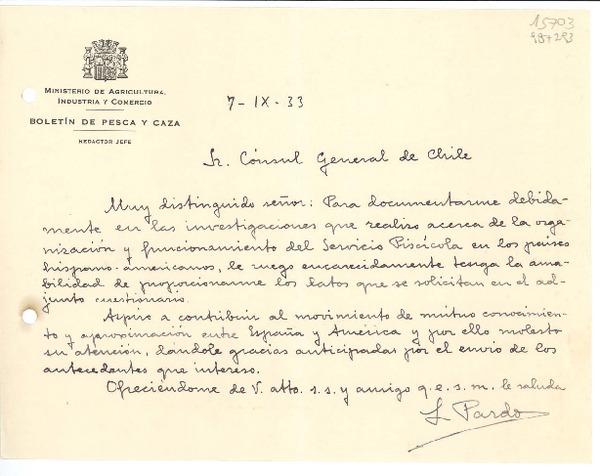 15703
MINISTERIO DE AGRICULTURA,
INDUSTRIA Y COMERCIO
BOLETÍN DE PESCA Y CAZA
REDACTOR JEFE
7-IX-33
Sr. Cónsul General de Chile
Muy distinguido señor: Para documentarme debida-
mente en las investigaciones que realizo acerca de la orga-
nización y funcionamiento del Servicio Piscícola en los países
hispano-americanos, le ruego encarecidamente tenga la ama-
bilidad de proporcionarme los datos que se solicitan en el ad-
junto cuestionario.
Aspiro a contribuir al movimiento de mutuo conocimien-
to y aproximación entre España y América y por ello molesto
su atención, dándole gracias anticipadas por el envio de los
antecedentes que intereso.
Ofreciéndome de V. atto. s.s. y amigo q.e.s.m. le saluda
L. Pardo